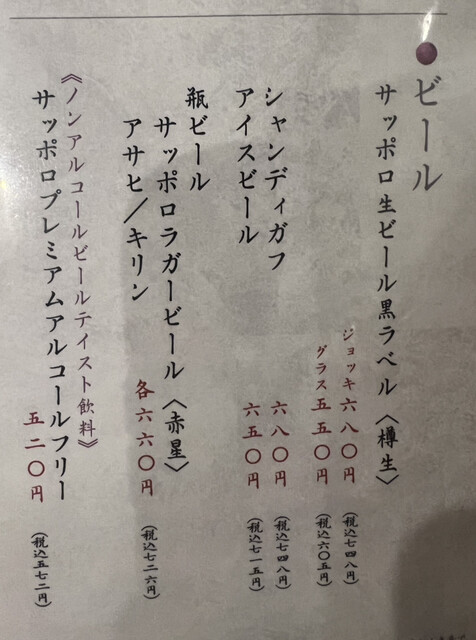 ●ビール
サッポロ生ビール黒ラベル〈樽生〉
ジョッキ六八〇円(税込七四八円)
グラス五五〇円(税込六〇五円)
シャンディガフ 六八〇円(税込七四八円)
アイスビール 六五〇円(税込七一五円)
瓶ビール
サッポロラガービール〈赤星〉
アサヒ/キリン 各六六〇円(税込七二六円)
《ノンアルコールビールテイスト飲料》
サッポロプレミアムアルコールフリー
五二〇円(税込五七二円)